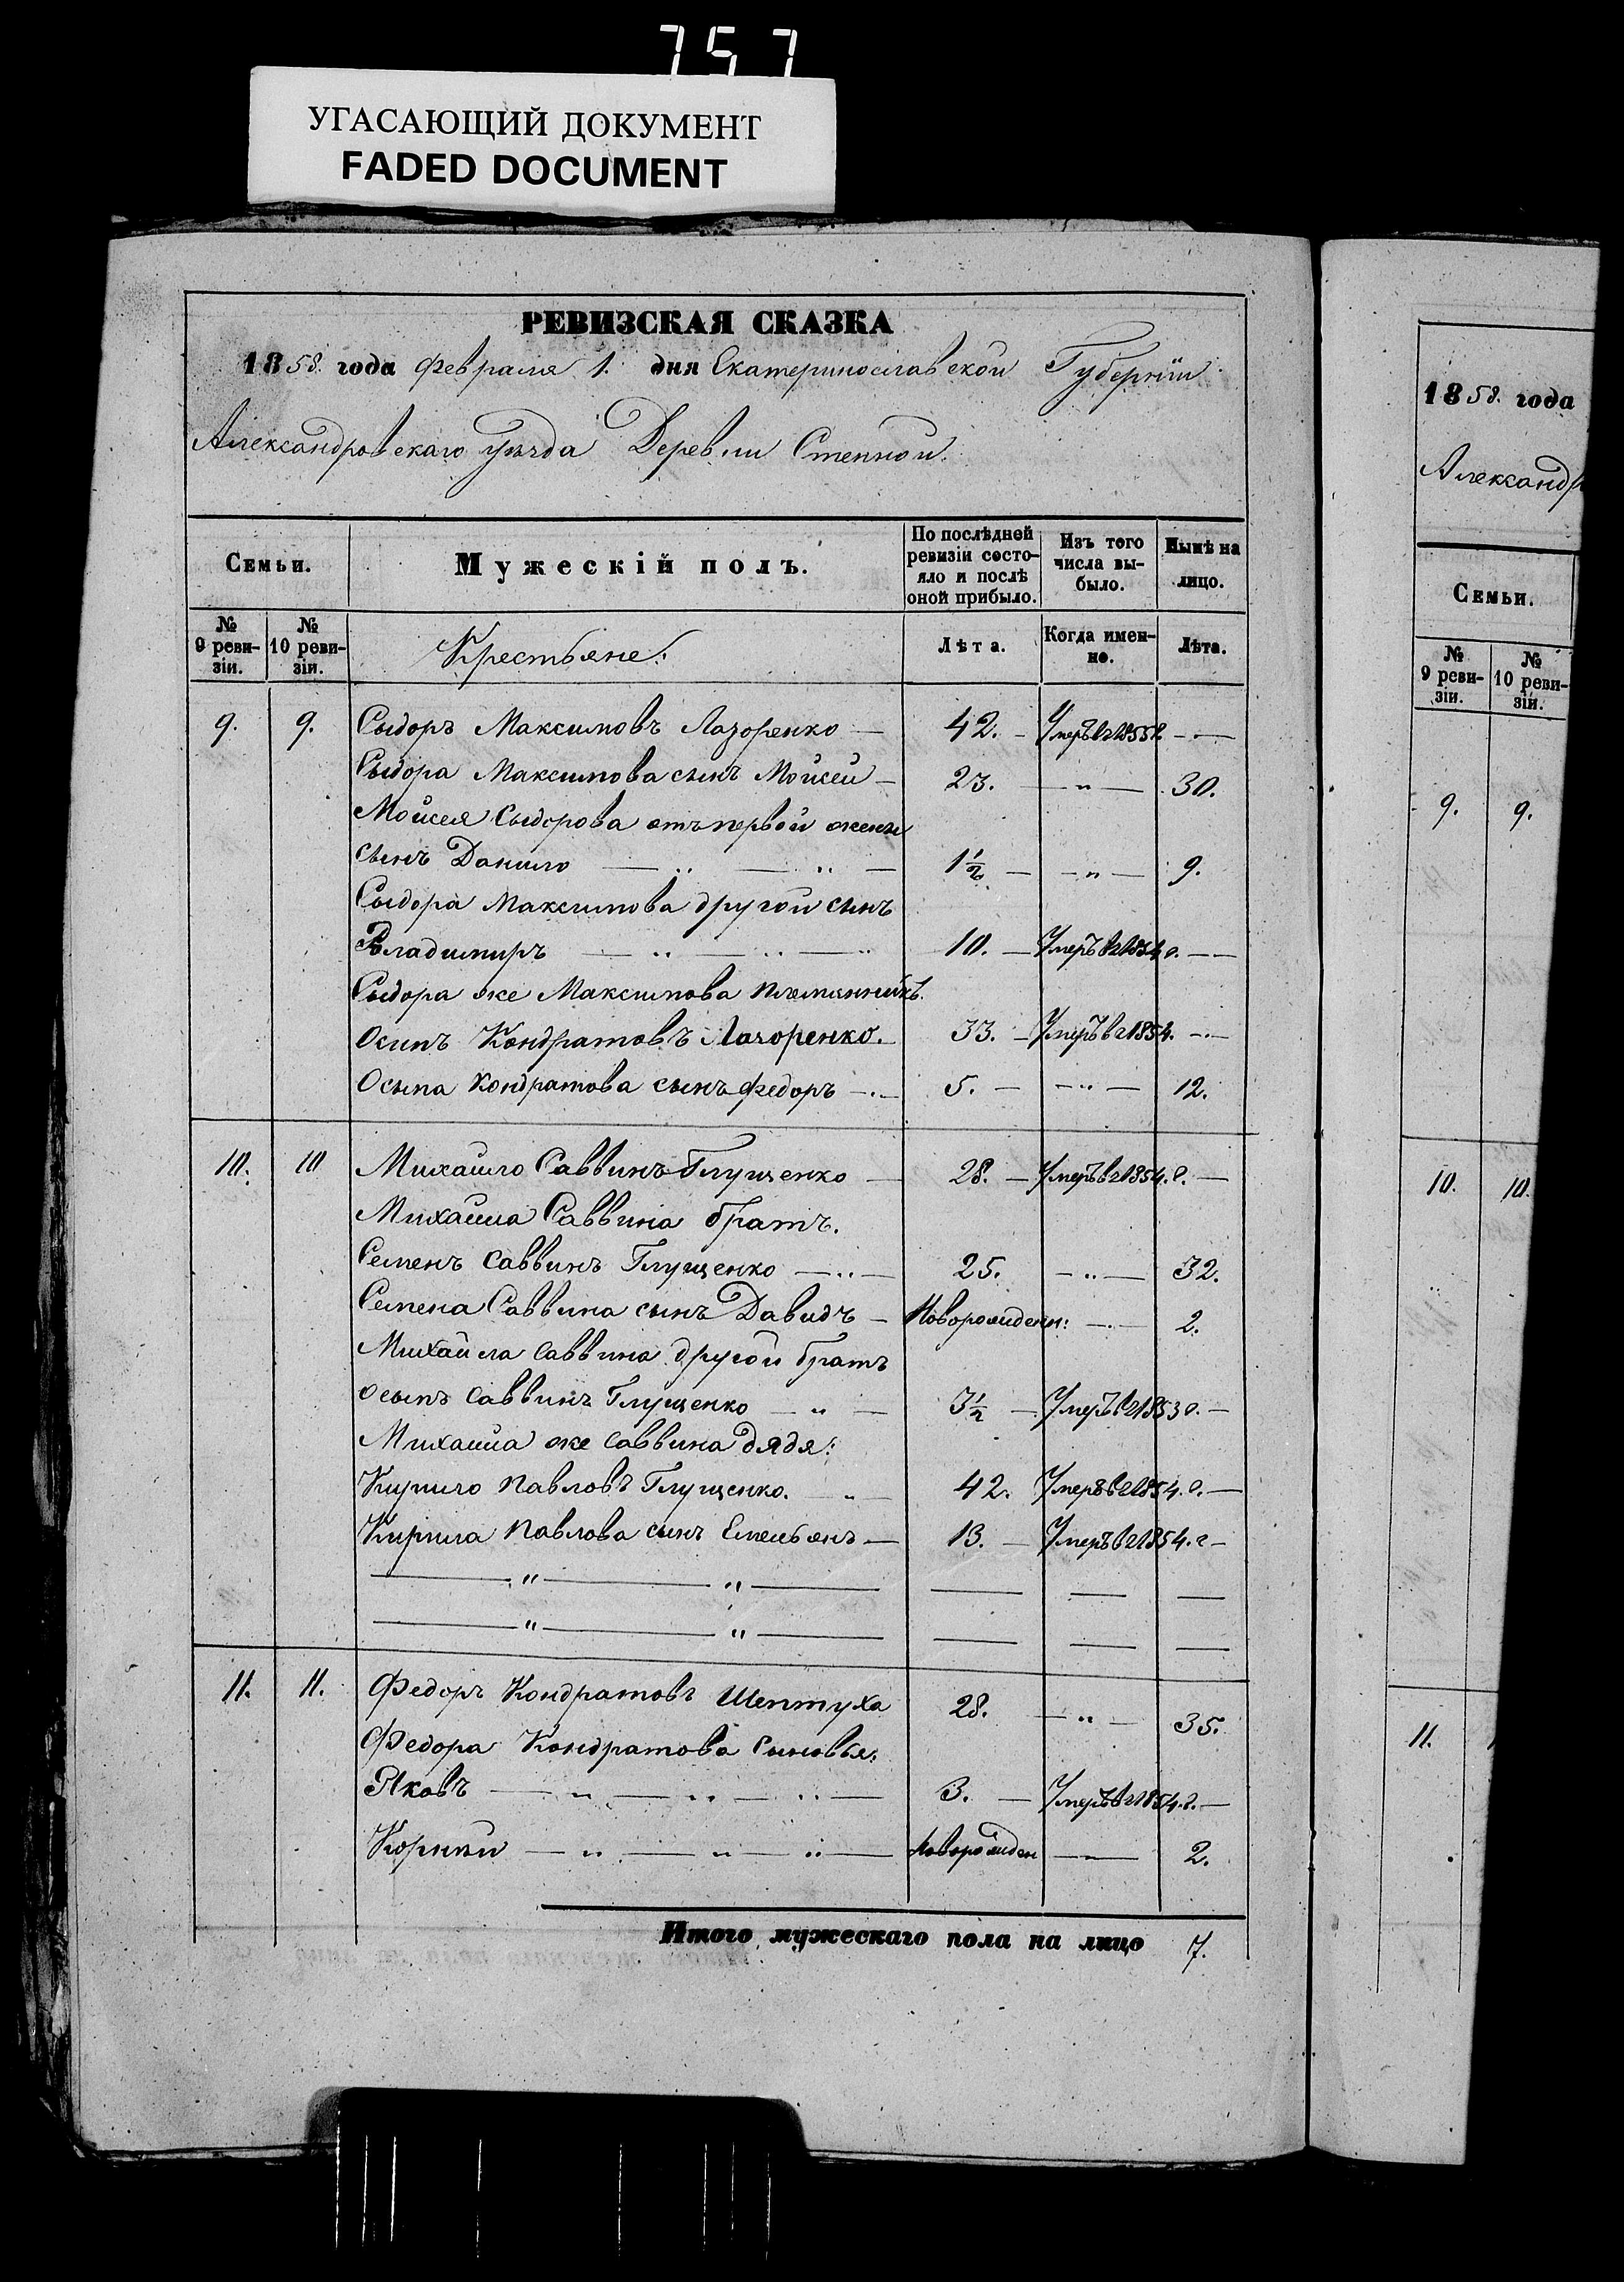 757
УГАСАЮЩИЙ ДОКУМЕНТ
FADED DOCUMENT
РЕВИЗСКАЯ СКАЗКА
1858. года Февраля 1. дня Екатеринославской Губерніи
Александровскаго уѣзда Деревни Степной.
Семьи. Мужескій полъ. По послѣдней ревизіи состояло и послѣ оной прибыло. Изъ того числа выбыло. Нынѣ на лицо.
№ 9 ревизіи. № 10 ревизіи. Крестьяне: Лѣта. Когда именно. Лѣта.
9. 9. Сыдоръ Максимовъ Лазоренко — 42. – Умеръ въ 1855 г. — · —
Сыдора Максимова сынъ Мойсей — 23. — „ — 30.
Мойсея Сыдорова отъ первой жены
сынъ Данило — „ — „ — 1½ — — „ — 9.
Сыдора Максимова другой сынъ
Владимиръ — „ — „ — „ 10. — Умеръ въ 1854 г. — —
Сыдора же Максимова племянникъ
Осипъ Кондратовъ Лазоренко. 33. — Умеръ въ 1854. — · —
Осыпа Кондратова сынъ Федоръ — · — 5. — — „ — 12.
10. 10 Михайло Саввинъ Глущенко — 28. — Умеръ въ 1854. г. —
Михайла Саввина братъ.
Семенъ Саввинъ Глущенко — „ — 25. — „ — 32.
Семена Саввина сынъ Давидъ — Новорожденн: — · — 2.
Михайла Саввина другой братъ
Осыпъ Саввинъ Глущенко — „ — 3½ — Умеръ въ 1853 г. —
Михайла же Саввина дядя:
Кирило Павловъ Глущенко. „ — 42. Умеръ въ 1854. г. —
Кирила Павлова сынъ Емельянъ — 13. — Умеръ въ 1854. г —
— „ — „ — — — —
— „ — „ — — — —
11. 11. Федоръ Кондратовъ Шептуха 28. — „ — 35.
Федора Кондратова сыновья:
Яковъ — „ — „ — „ — 3. — Умеръ въ 1854. г. —
Корнѣй — „ — „ — „ — Новорожден — „ — 2.
Итого мужескаго пола на лицо 7.
1858. года
Александр
Семьи.
№ 9 ревизіи. № 10 ревизіи.
9. 9.
10. 10.
11.